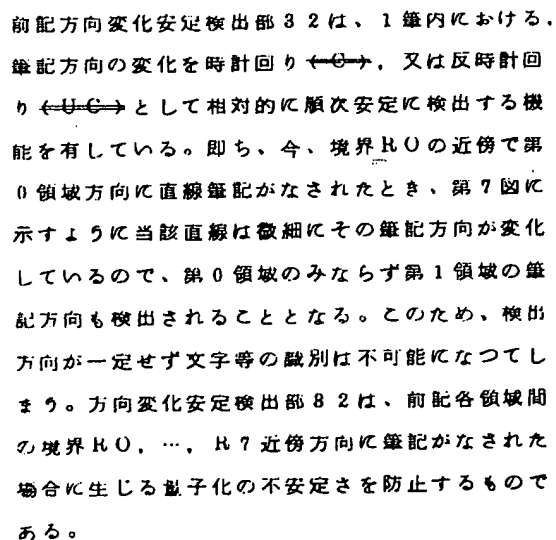 前記方向変化安定検出部32は、1筆内における、
筆記方向の変化を時計回り(C), 又は反時計回
り(UC)として相対的に順次安定に検出する機
能を有している。即ち、今、境界R0の近傍で第
0領域方向に直線筆記がなされたとき、第7図に
示すように当該直線は微細にその筆記方向が変化
しているので、第0領域のみならず第1領域の筆
記方向も検出されることとなる。このため、検出
方向が一定せず文字等の識別は不可能になつてし
まう。方向変化安定検出部32は、前記各領域間
の境界R0, …, R7近傍方向に筆記がなされた
場合に生じる量子化の不安定さを防止するもので
ある。